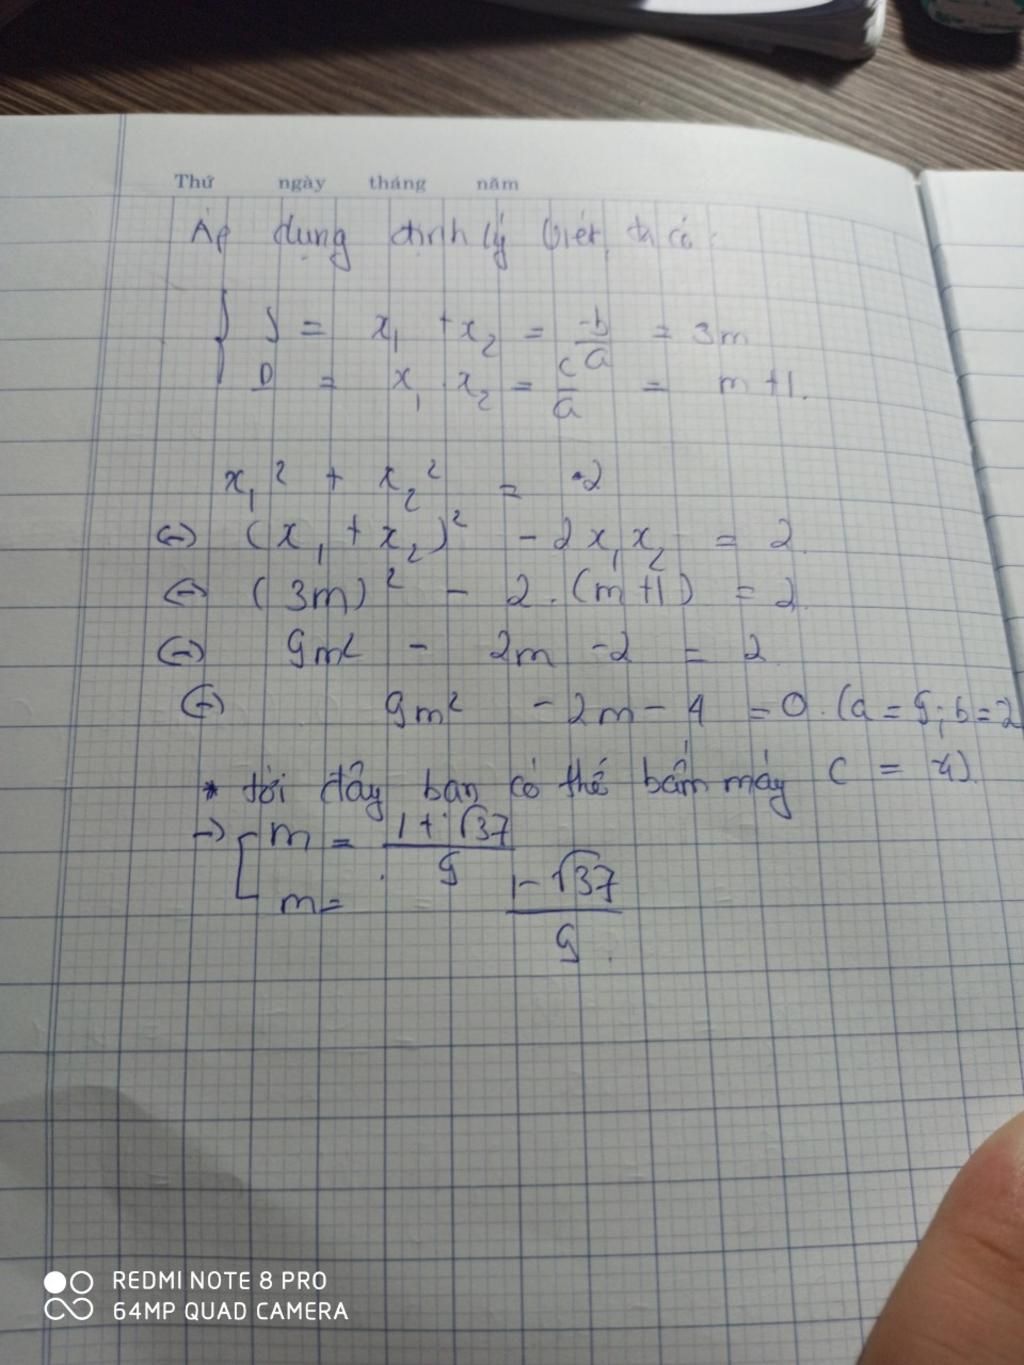 Thứ ngày tháng năm
Áp dụng định lý Viét, ta có:
S = x₁ + x₂ = -b/a = 3m
P = x₁ x₂ = c/a = m+1.
x₁² + x₂² = 2
(=) (x₁ + x₂)² - 2x₁x₂ = 2
(=) (3m)² - 2.(m+1) = 2
(=) 9m² - 2m - 2 = 2
(=) 9m² - 2m - 4 = 0. (a = 9; b = 2
* tới đây bạn có thể bấm máy c = 4).
-> [ m = (1+√37)/9
m = (1-√37)/9
REDMI NOTE 8 PRO
64MP QUAD CAMERA